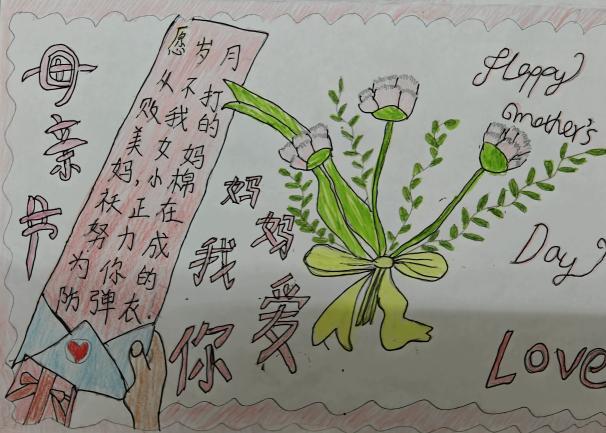 母亲节
愿岁月
从不打
败我的
美女妈
妈,小棉
袄正在
努力成
为你的
防弹衣.
妈妈
我爱
你
Happy
mother's
Day
Love